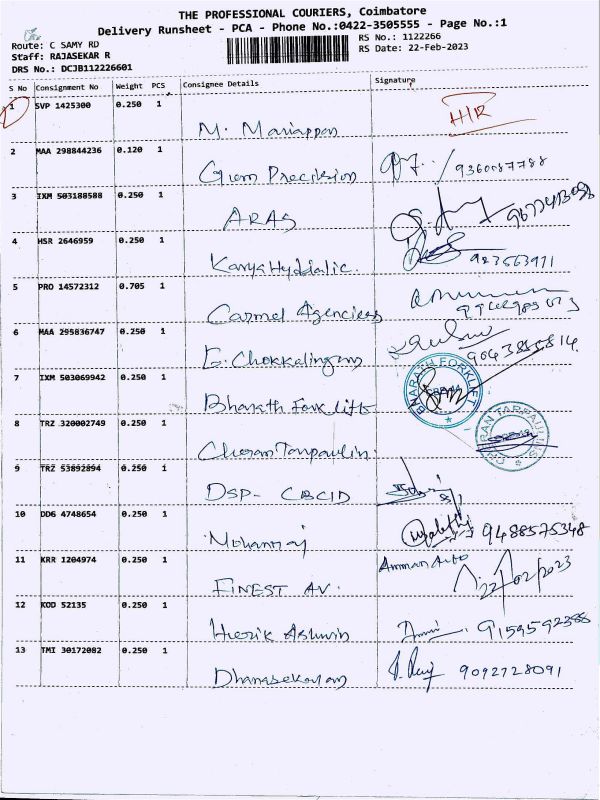 THE PROFESSIONAL COURIERS, Coimbatore
Delivery Runsheet - PCA - Phone No.:0422-3505555 - Page No.:1
Route: C SAMY RD
Staff: RAJASEKAR R
DRS No.: DCJB112226601
RS No.: 1122266
RS Date: 22-Feb-2023
S No Consignment No Weight PCS Consignee Details Signature
1 SVP 1425300 0.250 1 M. Mariappan
2 MAA 298844236 0.120 1 Gem Precision 9360087788
3 IXM 503188588 0.250 1 ARAS
4 HSR 2646959 0.250 1 Karya Hyddalic.
5 PRO 14572312 0.705 1 Carmel Agencies
6 MAA 295836747 0.250 1 E. Chokkalingam
7 IXM 503069942 0.250 1 Bharath Forklifts BHARATH FORKLIFT
8 TRZ 320002749 0.250 1 Cheran Tarpaulin.
9 TRZ 53892894 0.250 1 DSP- CBCID
10 DDG 4748654 0.250 1 Mohanraj 9488575348
11 KRR 1204974 0.250 1 FINEST AV. Amman Auto 22/02/2023
12 KOD 52135 0.250 1 Ashwin 9159592388
13 TMI 30172082 0.250 1 Dhanasekaran 9092728091